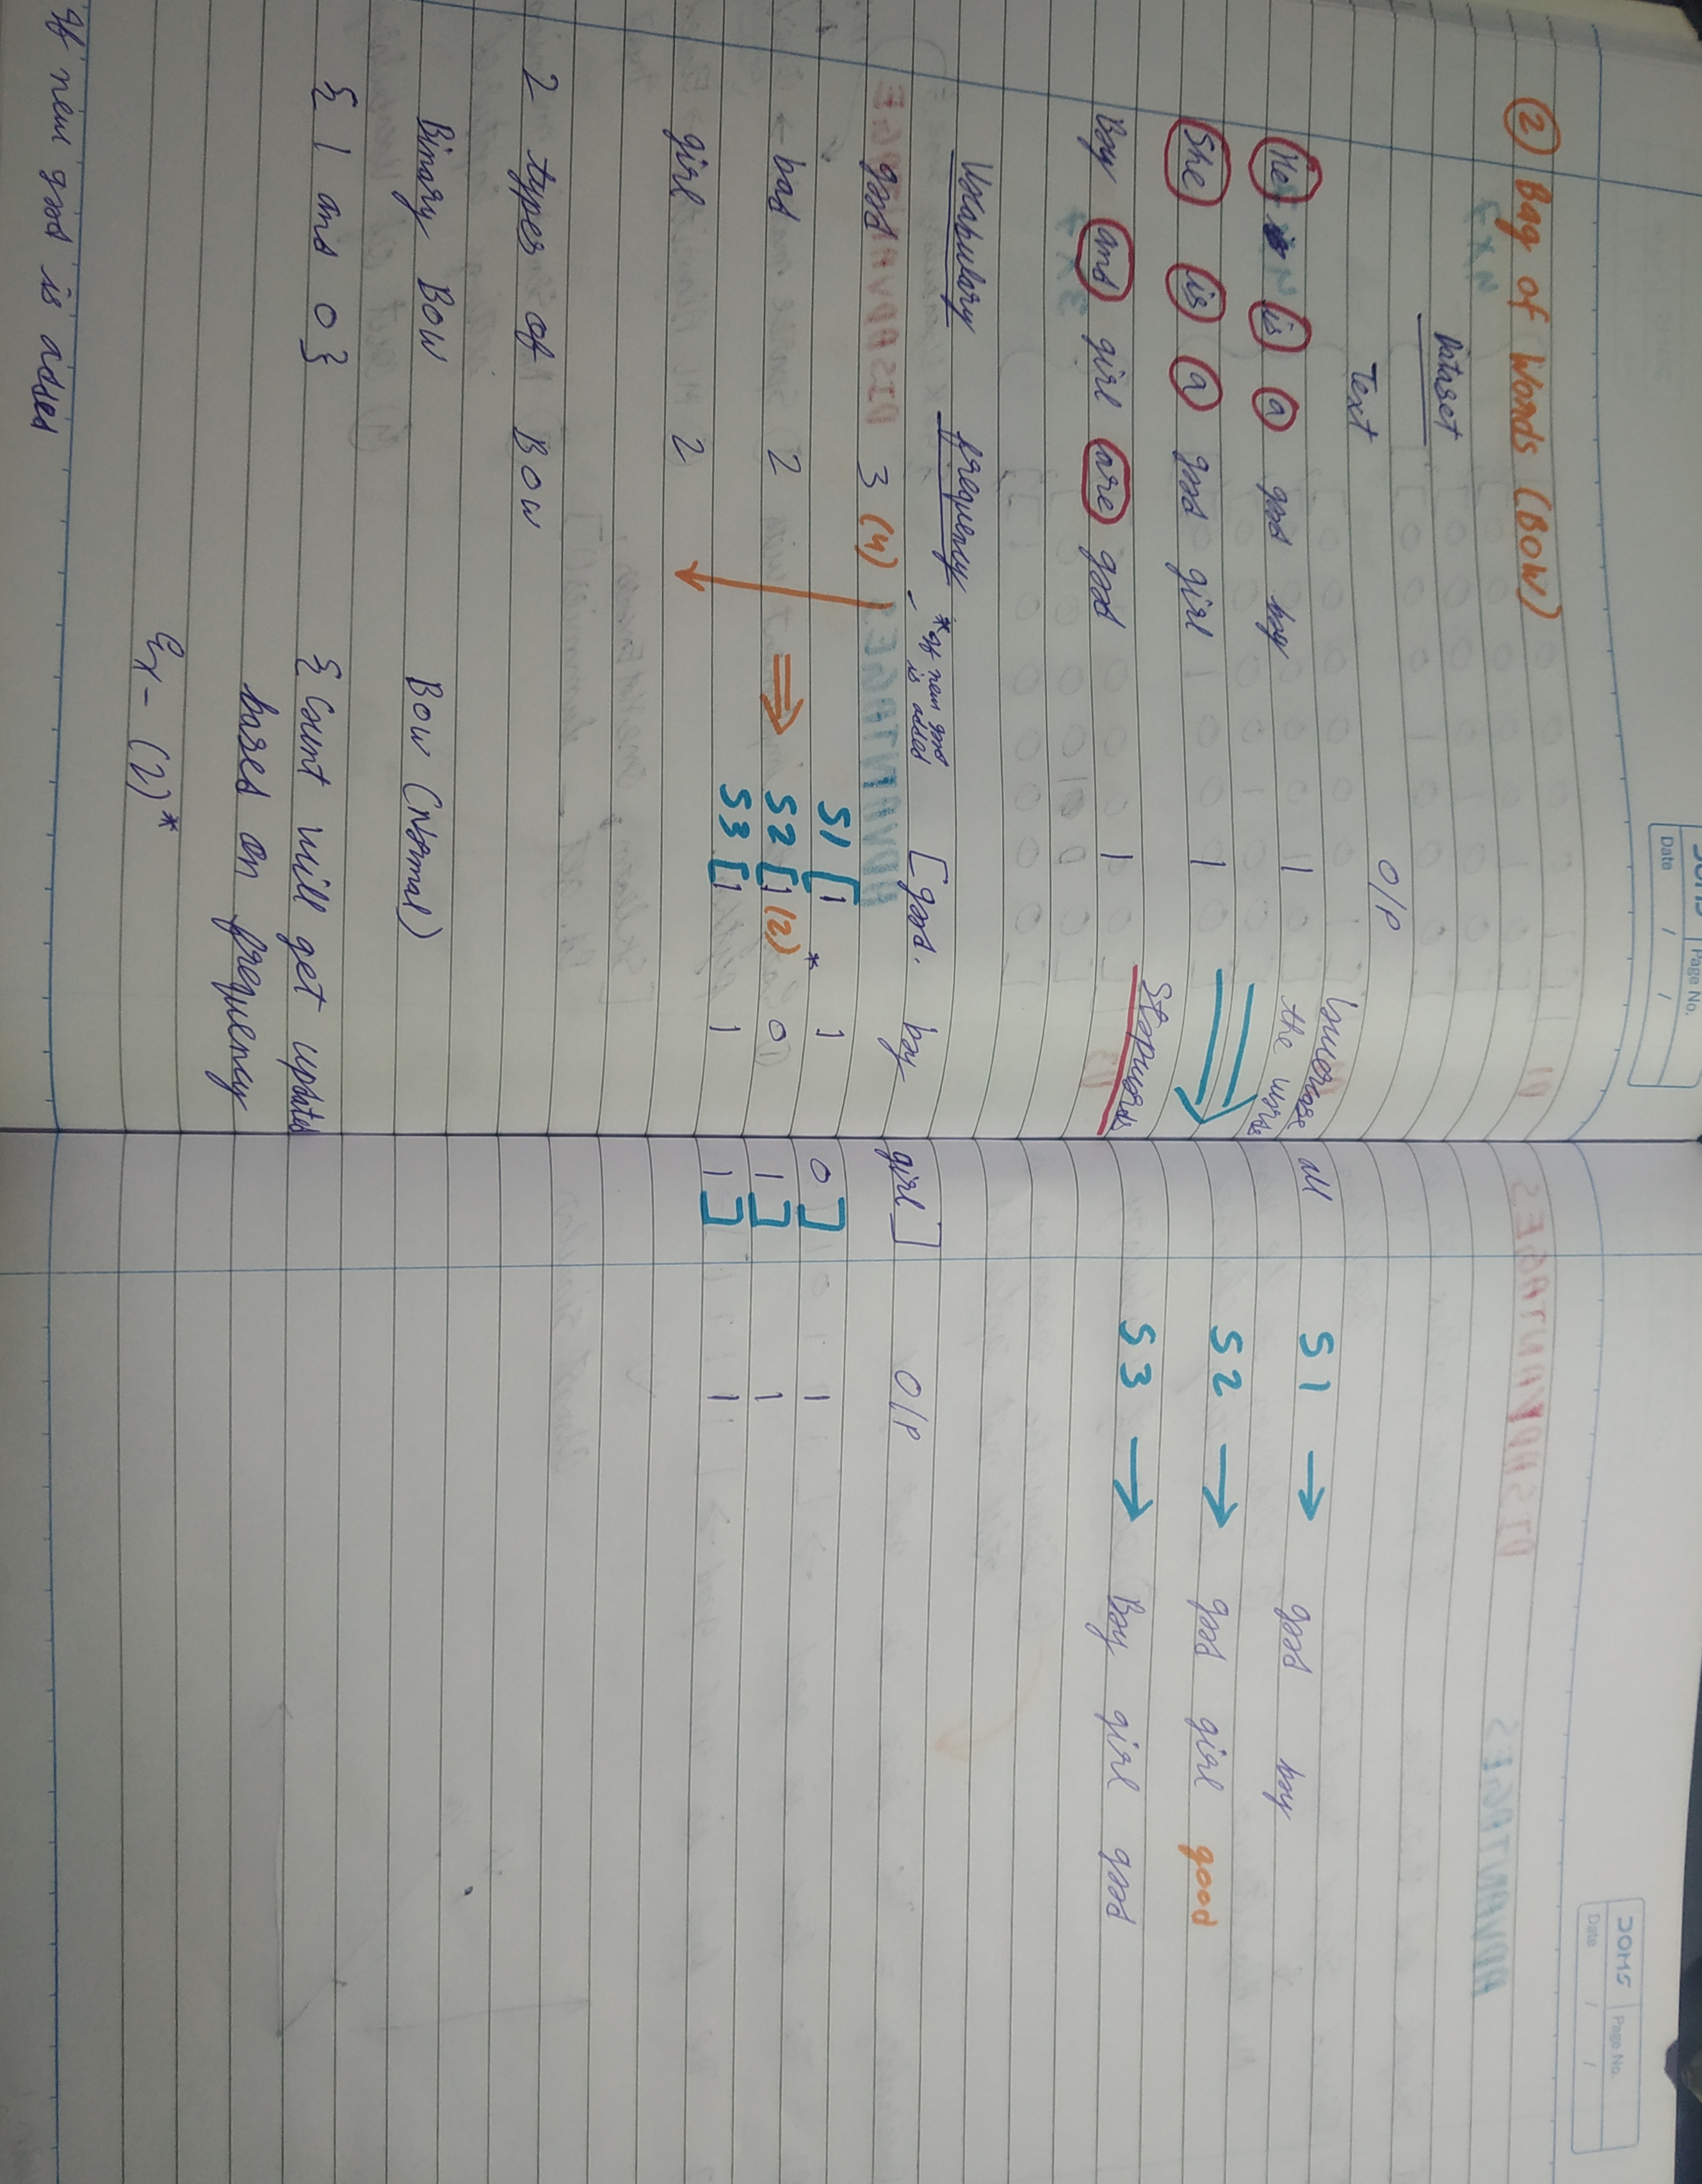 DOMS Page No.
Date / /
② Bag of Words (BOW)
Dataset
Text O/P
He is a good boy 1
She is a good girl 1
Boy and girl are good 1
Lowercase all
the words
Stopwords
S1 → good boy
S2 → good girl good
S3 → Boy girl good
Vocabulary frequency
*If new good
is added
good 3 (4)
boy 2
girl 2
[good. boy girl] O/P
S1 [1 1 0] 1
S2 [1(2)* 0 1] 1
S3 [1 1 1] 1
2 types of BOW
Binary BOW BOW (Normal)
{1 and 0} {Count will get updated
based on frequency
Ex - (2)*
If new good is added
DOMS Page No.
Date / /